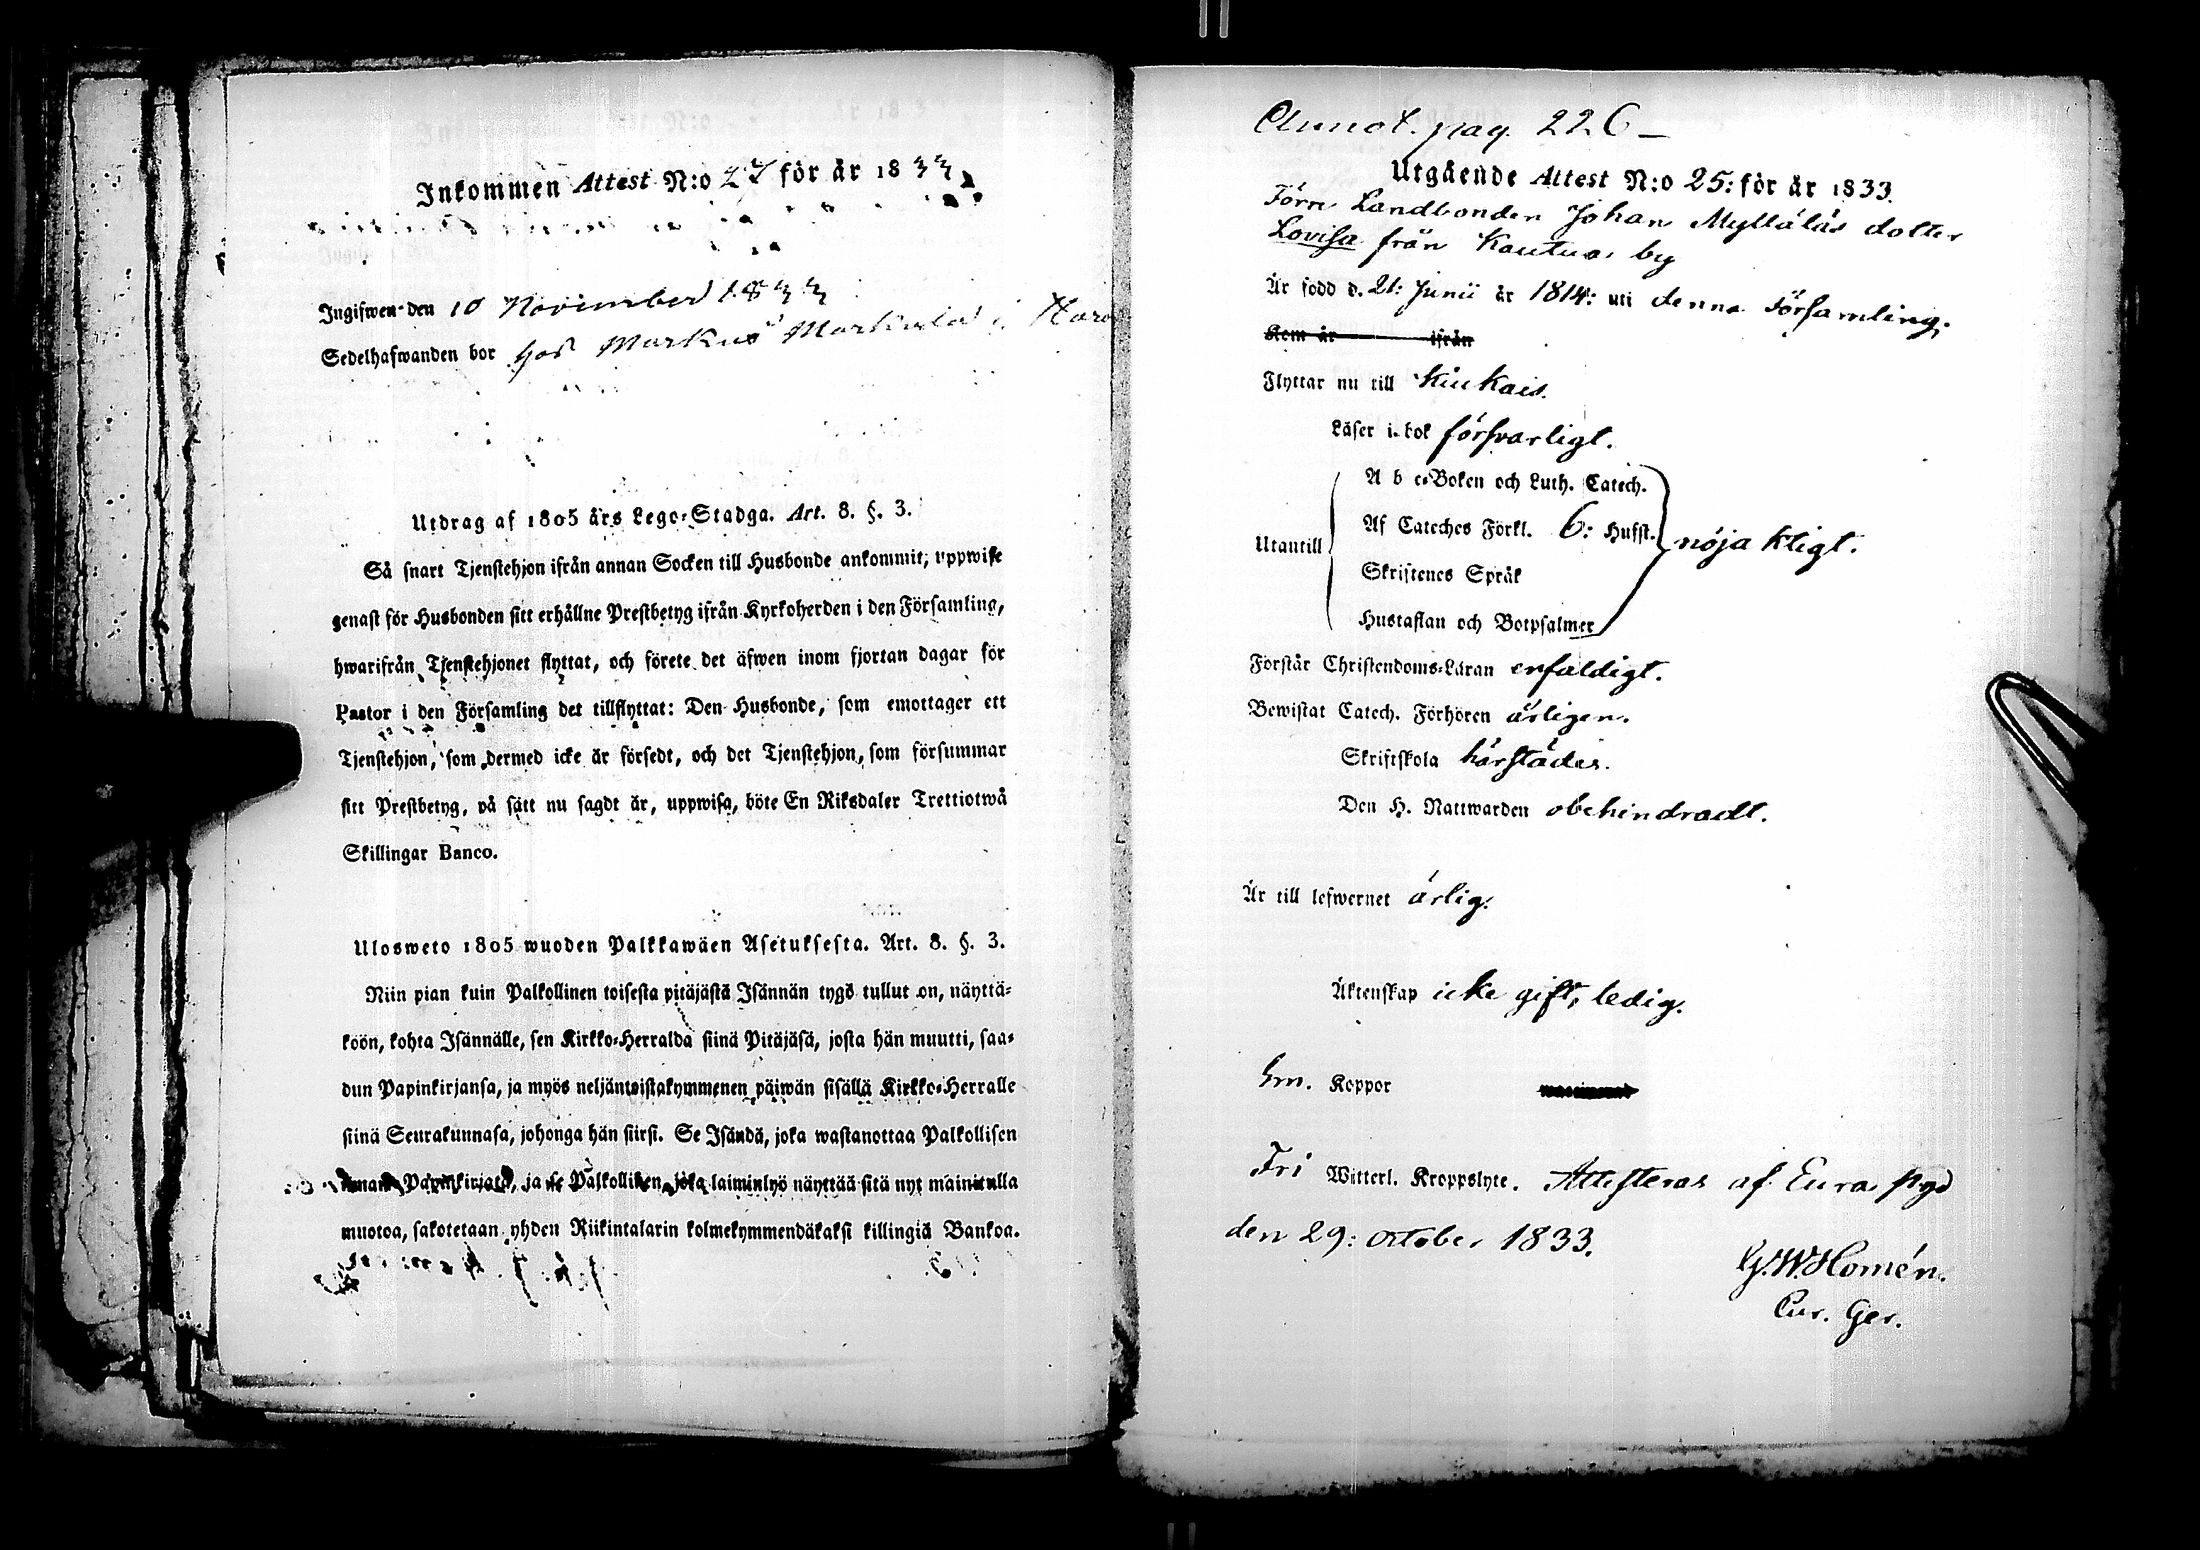 Inkommen Attest N:o 27 för år 1833
Ingifwen den 10 November 1833
Sedelhafwanden bor hos Markus Markula i
Utdrag af 1805 års Lego-Stadga. Art. 8. §. 3.
Så snart Tjenstehjon ifrån annan Socken till Husbonde ankommit, uppwise
genast för Husbonden sitt erhållne Prestbetyg ifrån Kyrkoherden i den Församling,
hwarifrån Tjenstehjonet flyttat, och förete det äfwen inom fjortan dagar för
Pastor i den Församling det tillflyttat: Den Husbonde, som emottager ett
Tjenstehjon, som dermed icke är försedt, och det Tjenstehjon, som försummar
sitt Prestbetyg, på sätt nu sagdt är, uppwisa, böte En Riksdaler Trettiotwå
Skillingar Banco.
Ulosweto 1805 wuoden Palkkawäen Asetuksesta. Art. 8. §. 3.
Niin pian kuin Palkollinen toisesta pitäjästä Isännän tygö tullut on, näyttä-
köön, kohta Isännälle, sen Kirkko-Herralda siinä Pitäjäsä, josta hän muutti, saa-
dun Papinkirjansa, ja myös neljäntoistakymmenen päiwän sisällä Kirkko-Herralle
siinä Seurakunnasa, johonga hän siirsi. Se Isändä, joka wastanottaa Palkollisen
ilman Papinkirjata, ja se Palkollinen, joka laiminlyö näyttää sitä nyt mainitulla
muotoa, sakotetaan yhden Riikintalarin kolmekymmendäkaksi killingiä Bankoa.
Annot. pag. 226
Utgående Attest N:o 25: för år 1833.
Förre Landbonden Johan Mylläläs dotter
Lovisa från Kautua by
Är född d. 21: Junii år 1814: uti denna Församling.
Kom år ifrån
Flyttar nu till Kiukais.
Läser i bok försvarligt.
A b c-Boken och Luth. Catech.
Af Cateches Förkl. 6: Hufst.
Utantill nöjaktigt.
Skriftenes Språk
Hustaflan och Botpsalmer
Förstår Christendoms-Läran enfaldigt.
Bewistat Catech. Förhören årligen.
Skriftskola härstädes.
Den H. Nattwarden obehindradt.
Är till lefwernet ärlig.
Äktenskap icke gift, ledig.
Hm. Koppor
Fri Witterl. Kroppslyte. Attesteras af Eura pgd
den 29: October 1833.
G. W. Homén.
Cur. Ger.